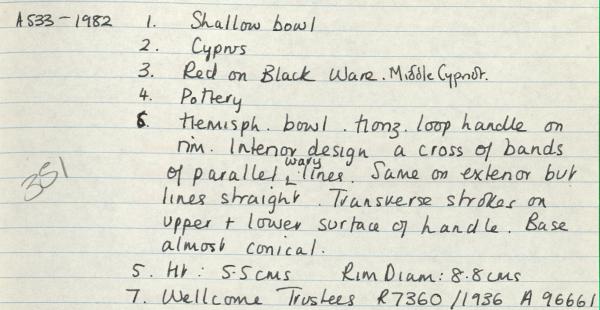 A533-1982 1. Shallow bowl
2. Cyprus
3. Red on Black Ware. Middle Cypriot.
4. Pottery
6. Hemisph. bowl. Horiz. loop handle on
rim. Interior design a cross of bands
of parallel wavy lines. Same on exterior but
351
lines straight. Transverse strokes on
upper + lower surface of handle. Base
almost conical.
5. Ht: 5.5cms Rim Diam: 8.8cms
7. Wellcome Trustees R7360/1936 A 96661